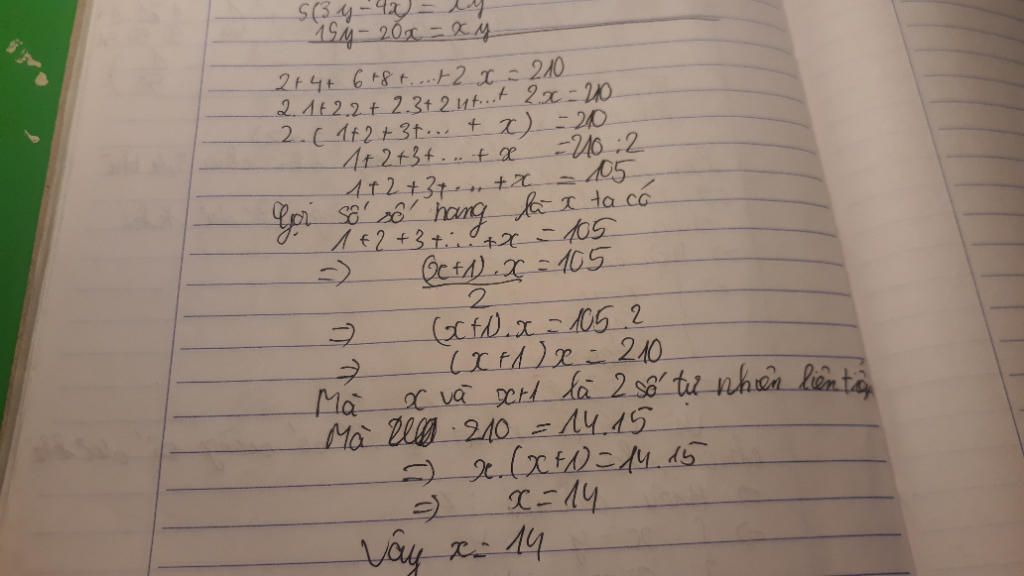 5(3y-4x) = xy
15y-20x = xy
2+4+ 6+8+...+2 x = 210
2.1+2.2 + 2.3+2 4+...+ 2.x = 210
2.( 1+2+3+... + x) = 210
1+2+3+...+ x = 210:2
1+2+3+...+x = 105
Gọi số số hạng là x ta có
1+2+3+...+x = 105
=> (x+1).x = 105
2
=> (x+1).x = 105.2
=> (x+1)x = 210
Mà x và x+1 là 2 số tự nhiên liên tiếp
Mà 210 = 14.15
=> x.(x+1) = 14.15
=> x = 14
Vậy x = 14